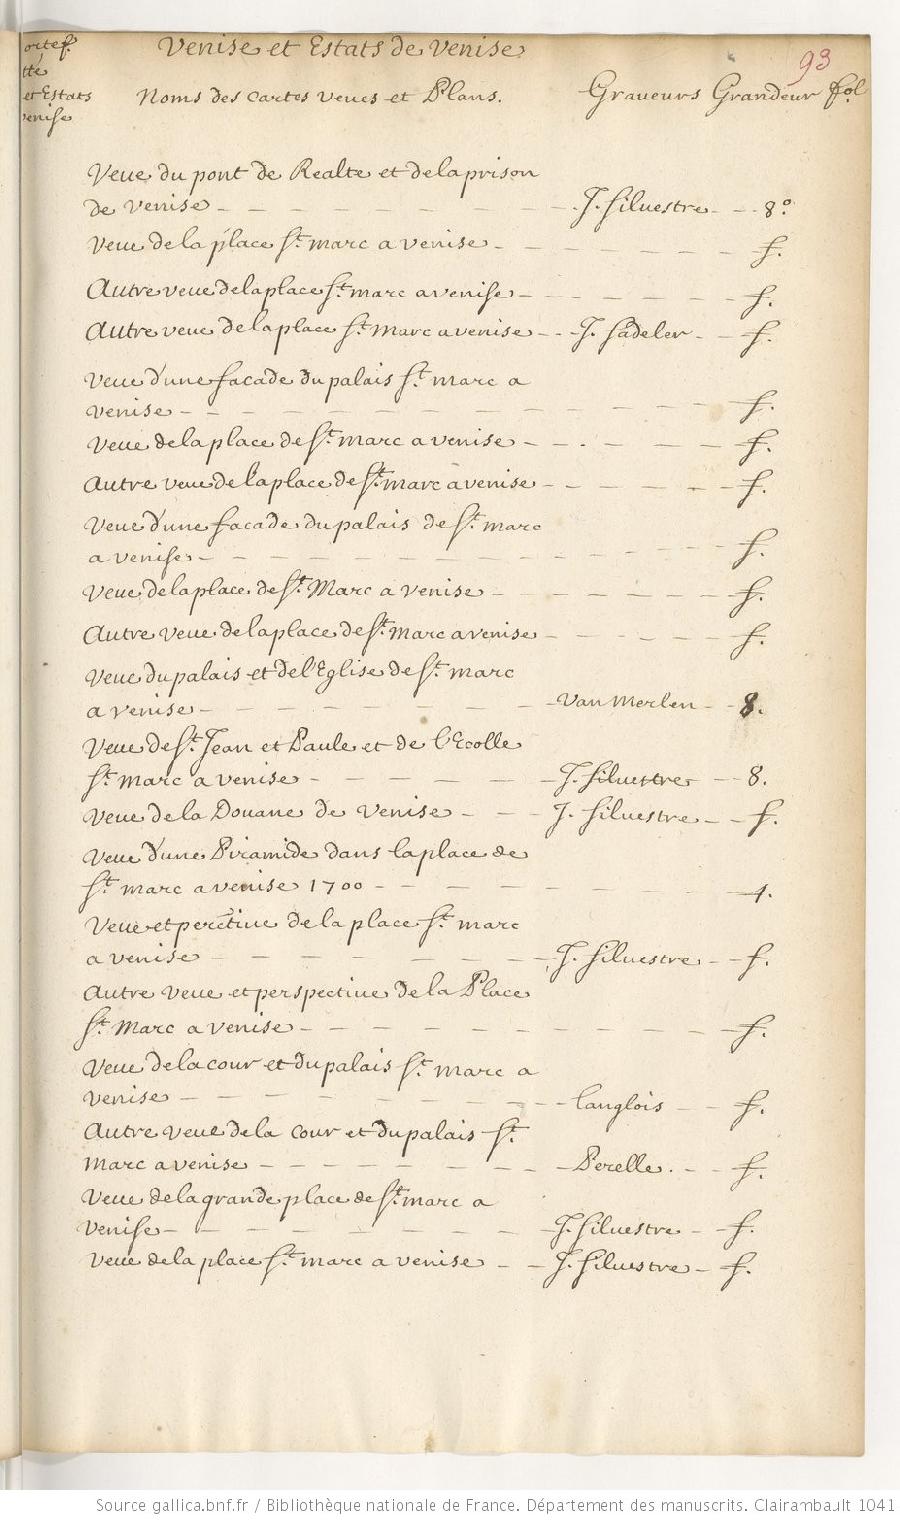 ortef. Venise et Estats de Venise
tté 93
et Estats Noms des Cartes veues et Plans. Graveurs Grandeur fol
venise
Veue du pont de Realte et de la prison
de Venise - - - - - - - - J. Silvestre - - 8.º
Veue de la place St. marc a venise - - - - - - - f.
Autre veue de la place St. marc a venise - - - - - - f.
Autre veue de la place St. Marc a venise - - J. Sadeler - - f.
Veue d'une facade du palais St. marc a
venise - - - - - - - - - - - f.
Veue de la place de St. marc a venise - - . - - - f.
Autre veue de la place de St. marc a venise - - - - - - f.
Veue d'une facade du palais de St. marc
a venise - - - - - - - - - - - f.
Veue de la place de St. Marc a Venise - - - - - - - f.
Autre Veue de la place de St. Marc a venise - - - - - - f.
Veue du palais et de l'Eglise de St. marc
a venise - - - - - - - - Van Merlen - - 8.
Veue de St. Jean et Paule et de l'Ecolle
St. Marc a venise - - - - - - J. Silvestre - - 8.
Veue de la Douane de Venise - - - J. Silvestre - - f.
Veue d'une Piramide dans la place de
St. marc a venise 1700 - - - - - - - - 4.
Veue et perctive de la place St. marc
a venise - - - - - - - J. Silvestre - - f.
Autre Veue et perspective de la Place
St. Marc a venise - - - - - - - - - - f.
Veue de la cour et du palais St. marc a
venise - - - - - - - - - Langlois - - f.
Autre Veue de la Cour et du palais St.
Marc a venise - - - - - - - Perelle. - - f.
Veue de la grande place de St. marc a
Venise - - - - - - - - J. Silvestre - - f.
Veue de la place St. marc a venise - - J. Silvestre - f.
Source gallica.bnf.fr / Bibliothèque nationale de France. Département des manuscrits. Clairambault 1041